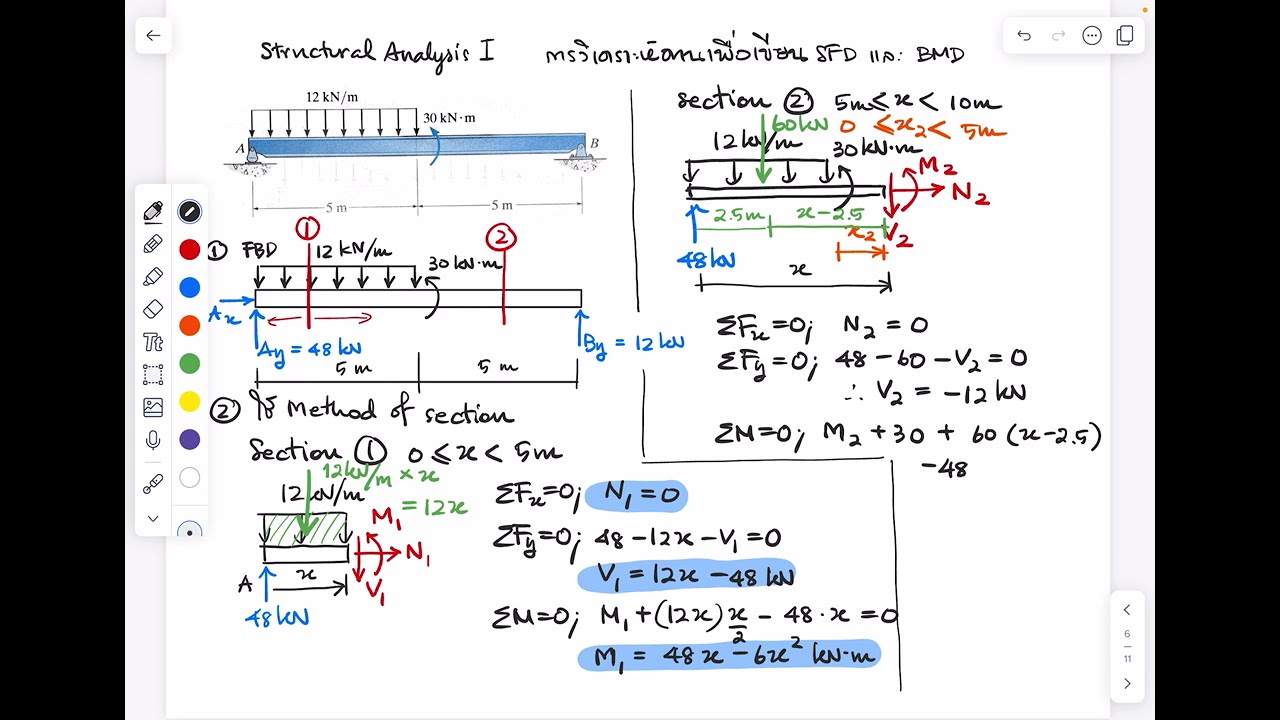 Structural Analysis I การวิเคราะห์คานเพื่อเขียน SFD และ BMD
12 kN/m
30 kN·m
A
B
5 m
5 m
① FBD 12 kN/m
①
②
30 kN·m
Ax
Ay = 48 kN
By = 12 kN
5 m
5 m
② ใช้ Method of section
Section ① 0 ≤ x < 5m
12kN/m × x
= 12x
12 kN/m
M₁
N₁
V₁
A
x
48 kN
ΣFx=0; N₁ = 0
ΣFy=0; 48 − 12x − V₁ = 0
V₁ = 12x − 48 kN
ΣM=0; M₁ + (12x) x/2 − 48·x = 0
M₁ = 48x − 6x² kN·m
section ② 5m ≤ x < 10m
60kN 0 ≤ x₂ < 5m
12 kN/m 30 kN·m
M₂
N₂
2.5m x−2.5
V₂
x₂
48 kN
x
ΣFx=0; N₂ = 0
ΣFy=0; 48 − 60 − V₂ = 0
∴ V₂ = −12 kN
ΣM=0; M₂ + 30 + 60 (x−2.5)
−48
Tt
6
11